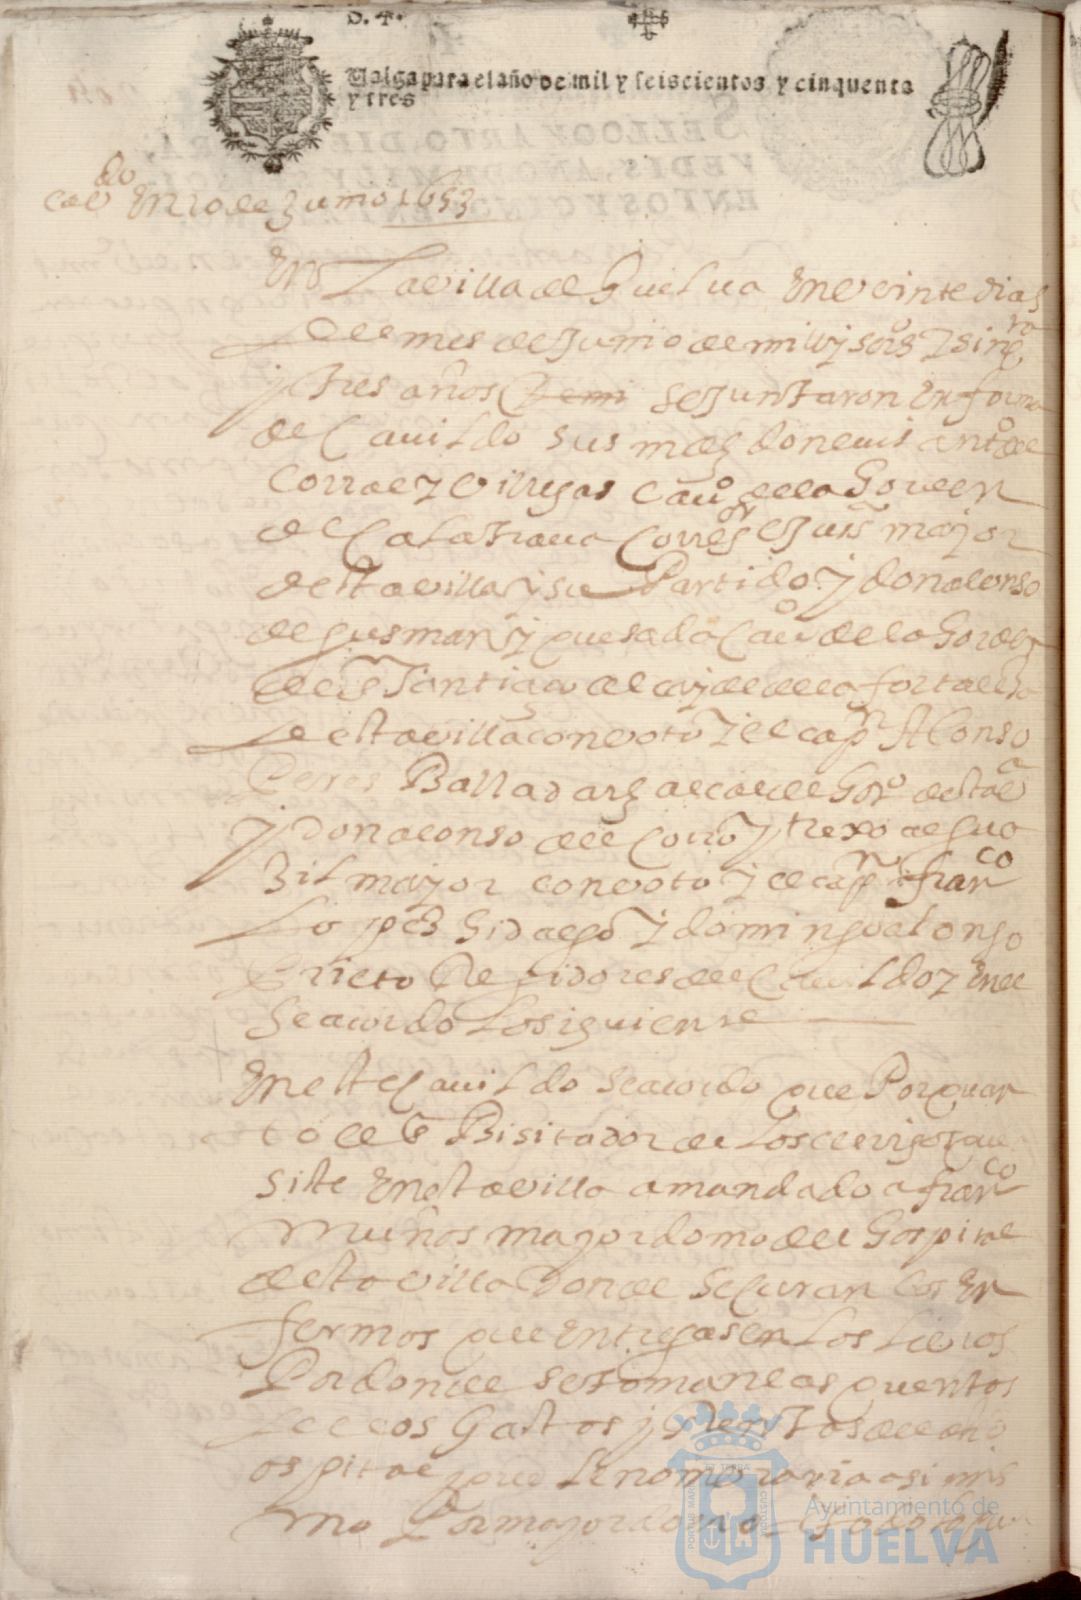 Valga para el año de mil y seiscientos y cinquenta
y tres
cavdo En 20 de Junio 1653
En La villa de Guelva En veinte dias
del mes de Junio de mill y seisos y sinqta
y tres años se Juntaron En forma
de Cavildo sus mds don luis anto de
Corral y Villegas Cavo de la Gorden
de Calatrava Corregor e Jues mayor
desta villa y su Partido y don alonso
de gusman y quesada Cavo de la Gorden
de sr Santiago alcayde de la fortalesa
desta villa con voto y el capn Alonso
Peres Balladars alcalde Gor desta va
y don alonso del Corro y trexo algua
Zil mayor con voto y el capn franco
Lopes Hidalgo y domingo alonso
Prieto Regidores del Cavildo y En el
Se acordo Lo siguiente
En este Cavildo Se acordo que Por quan
to el Sr Bisitador de Los clerigos que
siste En esta villa a mandado a franco
Muños mayordomo del Gospital
desta villa Donde Se Curan los En
fermos que Entregasen Los Libros
Por donde se toman las quentas
de los Gastos y Rentas del dho
ospital que le nombraria asi mis
mo Por mayordomo
Ayuntamiento de
HUELVA